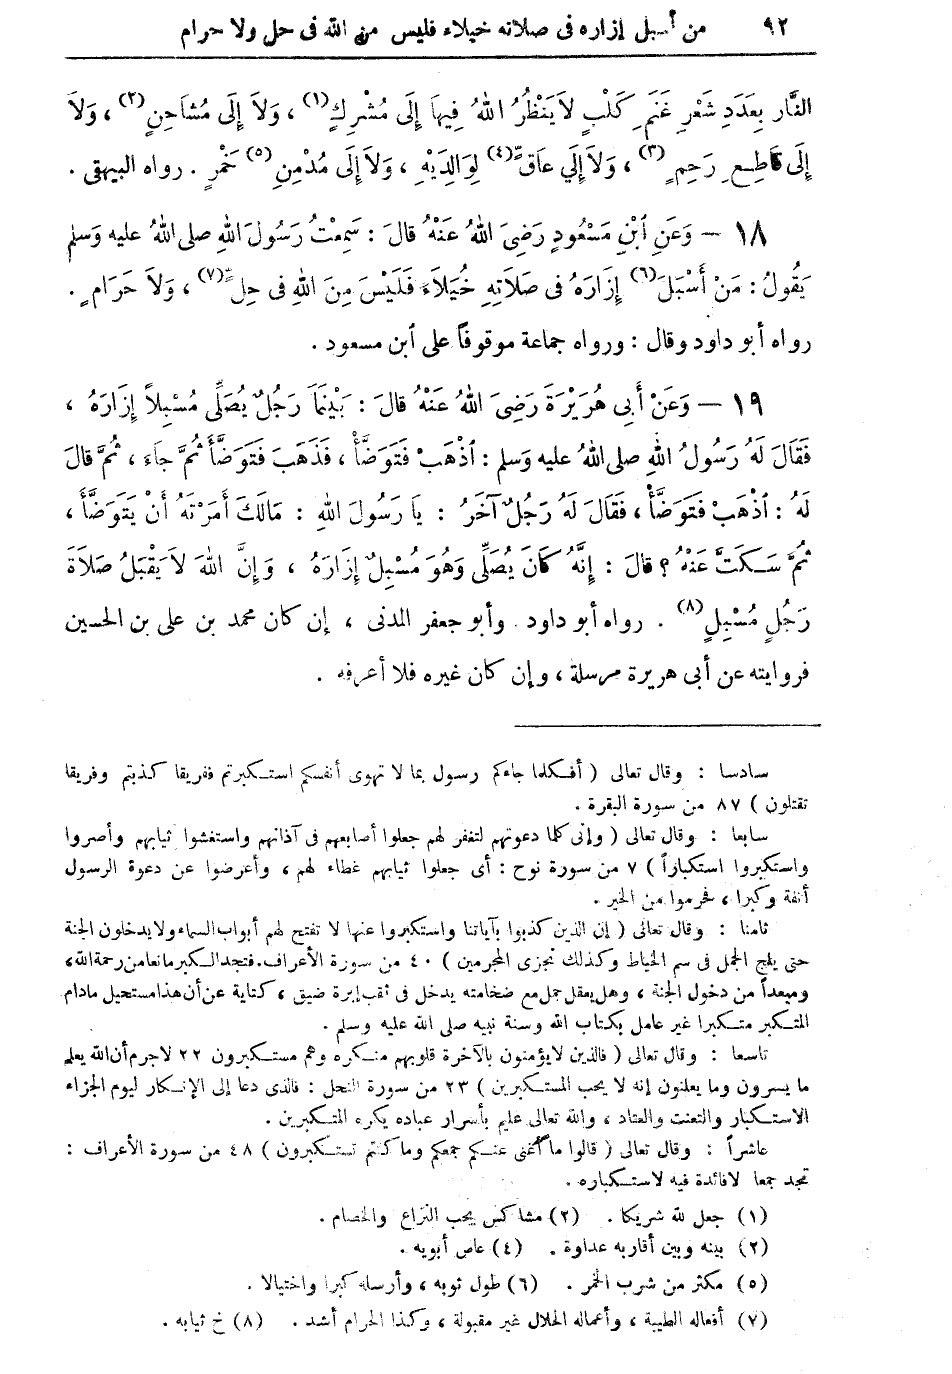 ٩٢ من أسبل إزاره فى صلاته خيلاء فليس من الله فى حل ولا حرام
النَّارِ بِعَدَدِ شَعْرِ غَنَمِ كَلْبٍ لاَيَنْظُرُ اللهُ فِيهَا إِلَى مُشْرِكٍ(١) ، وَلاَ إِلَى مُشَاحِنٍ(٢) ، وَلاَ
إِلَى قَاطِعِ رَحِمٍ(٣) ، وَلاَ إِلَي عَاقٍّ(٤) لِوَالِدَيْهِ ، وَلاَ إِلَى مُدْمِنِ(٥) خَمْرٍ . رواه البيهقى .
١٨ — وَعَنِ ٱبْنِ مَسْعُودٍ رَضِىَ اللهُ عَنْهُ قالَ : سَمِعْتُ رَسُولَ اللهِ صلى اللهُ عليه وَسلم
يَقُولُ : مَنْ أَسْبَلَ(٦) إِزَارَهُ فى صَلاَتِهِ خُيَلاَءَ فَلَيْسَ مِنَ اللهِ فى حِلٍّ(٧) ، وَلاَ حَرَامٍ .
رواه أبو داود وقال : ورواه جماعة موقوفاً على ٱبن مسعود .
١٩ — وَعَنْ أَبِى هُرَيْرَةَ رَضِىَ اللهُ عَنْهُ قالَ : بَيْنَمَا رَجُلٌ يُصَلِّى مُسْبِلاً إِزَارَهُ ،
فَقَالَ لَهُ رَسُولُ اللهِ صلى اللهُ عليه وسلم : ٱذْهَبْ فَتَوَضَّأْ ، فَذَهَبَ فَتَوَضَّأَ ثُمَّ جَاءَ ، ثُمَّ قالَ
لَهُ : ٱذْهَبْ فَتَوَضَّأْ ، فَقَالَ لَهُ رَجُلٌ آخَرُ : يَا رَسُولَ اللهِ : مَالَكَ أَمَرْتَهُ أَنْ يَتَوَضَّأَ ،
ثُمَّ سَكَتَّ عَنْهُ ؟ قالَ : إِنَّهُ كَانَ يُصَلِّى وَهُوَ مُسْبِلٌ إِزَارَهُ ، وَإِنَّ اللهَ لاَيَقْبَلُ صَلاَةَ
رَجُلٍ مُسْبِلٍ(٨) . رواه أبو داود . وأبو جعفر المدنى ، إن كان محمد بن على بن الحسين
فروايته عن أبى هريرة مرسلة ، وإن كان غيره فلا أعرفه .
سادسا : وقال تعالى ( أفكلما جاءكم رسول بما لا تهوى أنفسكم استكبرتم ففريقا كذبتم وفريقا
تقتلون ) ٨٧ من سورة البقرة .
سابعا : وقال تعالى ( وإنى كلما دعوتهم لتغفر لهم جعلوا أصابعهم فى آذانهم واستغشوا ثيابهم وأصروا
واستكبروا استكباراً ) ٧ من سورة نوح : أى جعلوا ثيابهم غطاء لهم ، وأعرضوا عن دعوة الرسول
أنفة وكبرا ، فحرموا من الخير .
ثامنا : وقال تعالى ( إن الذين كذبوا بآياتنا واستكبروا عنها لا تفتح لهم أبواب السماء ولا يدخلون الجنة
حتى يلج الجمل فى سم الخياط وكذلك نجزى المجرمين ) ٤٠ من سورة الأعراف. فتجد الكبر مانعا من رحمة الله ،
ومبعداً من دخول الجنة ، وهل يعقل جمل مع ضخامته يدخل فى ثقب إبرة ضيق ، كناية عن أن هذا مستحيل مادام
المتكبر متكبرا غير عامل بكتاب الله وسنة نبيه صلى الله عليه وسلم .
تاسعا : وقال تعالى ( فالذين لايؤمنون بالآخرة قلوبهم منكره وهم مستكبرون ٢٢ لاجرم أن الله يعلم
ما يسرون وما يعلنون إنه لا يحب المستكبرين ) ٢٣ من سورة النحل : فالذى دعا إلى الإنكار ليوم الجزاء
الاستكبار والتعنت والعناد ، والله تعالى عليم بأسرار عباده يكره المتكبرين .
عاشراً : وقال تعالى ( قالوا ما أغنى عنكم جمعكم وما كنتم تستكبرون ) ٤٨ من سورة الأعراف :
تجد جمعا لافائدة فيه لاستكباره .
(١) جعل لله شريكا . (٢) مشاكس يحب النزاع والخصام .
(٢) بينه وبين أقاربه عداوة . (٤) عاص أبويه .
(٥) مكثر من شرب الخمر . (٦) طول ثوبه ، وأرسله كبرا واختيالا .
(٧) أفعاله الطيبة ، وأعماله الحلال غير مقبولة ، وكذا الحرام أشد . (٨) خ ثيابه .